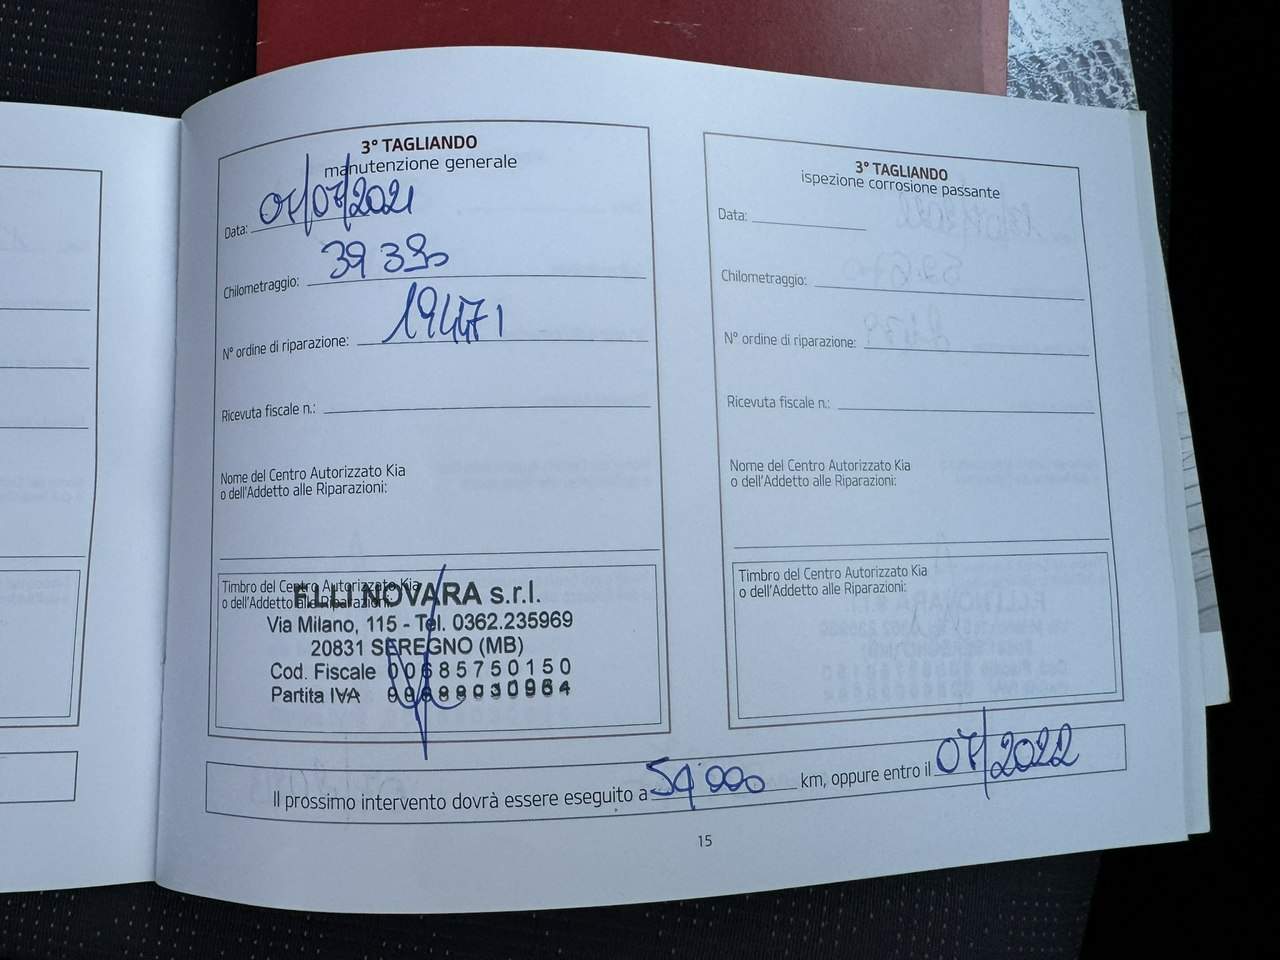 3° TAGLIANDO
manutenzione generale
Data: 07/07/2021
Chilometraggio: 39390
N° ordine di riparazione: 19471
Ricevuta fiscale n.:
Nome del Centro Autorizzato Kia
o dell'Addetto alle Riparazioni:
Timbro del Centro Autorizzato Kia
o dell'Addetto alle Riparazioni:
F.LLI NOVARA s.r.l.
Via Milano, 115 - Tel. 0362.235969
20831 SEREGNO (MB)
Cod. Fiscale 00685750150
Partita IVA
3° TAGLIANDO
ispezione corrosione passante
Data:
Chilometraggio:
N° ordine di riparazione:
Ricevuta fiscale n.:
Nome del Centro Autorizzato Kia
o dell'Addetto alle Riparazioni:
Timbro del Centro Autorizzato Kia
o dell'Addetto alle Riparazioni:
Il prossimo intervento dovrà essere eseguito a 59'000 km, oppure entro il 07/2022
15